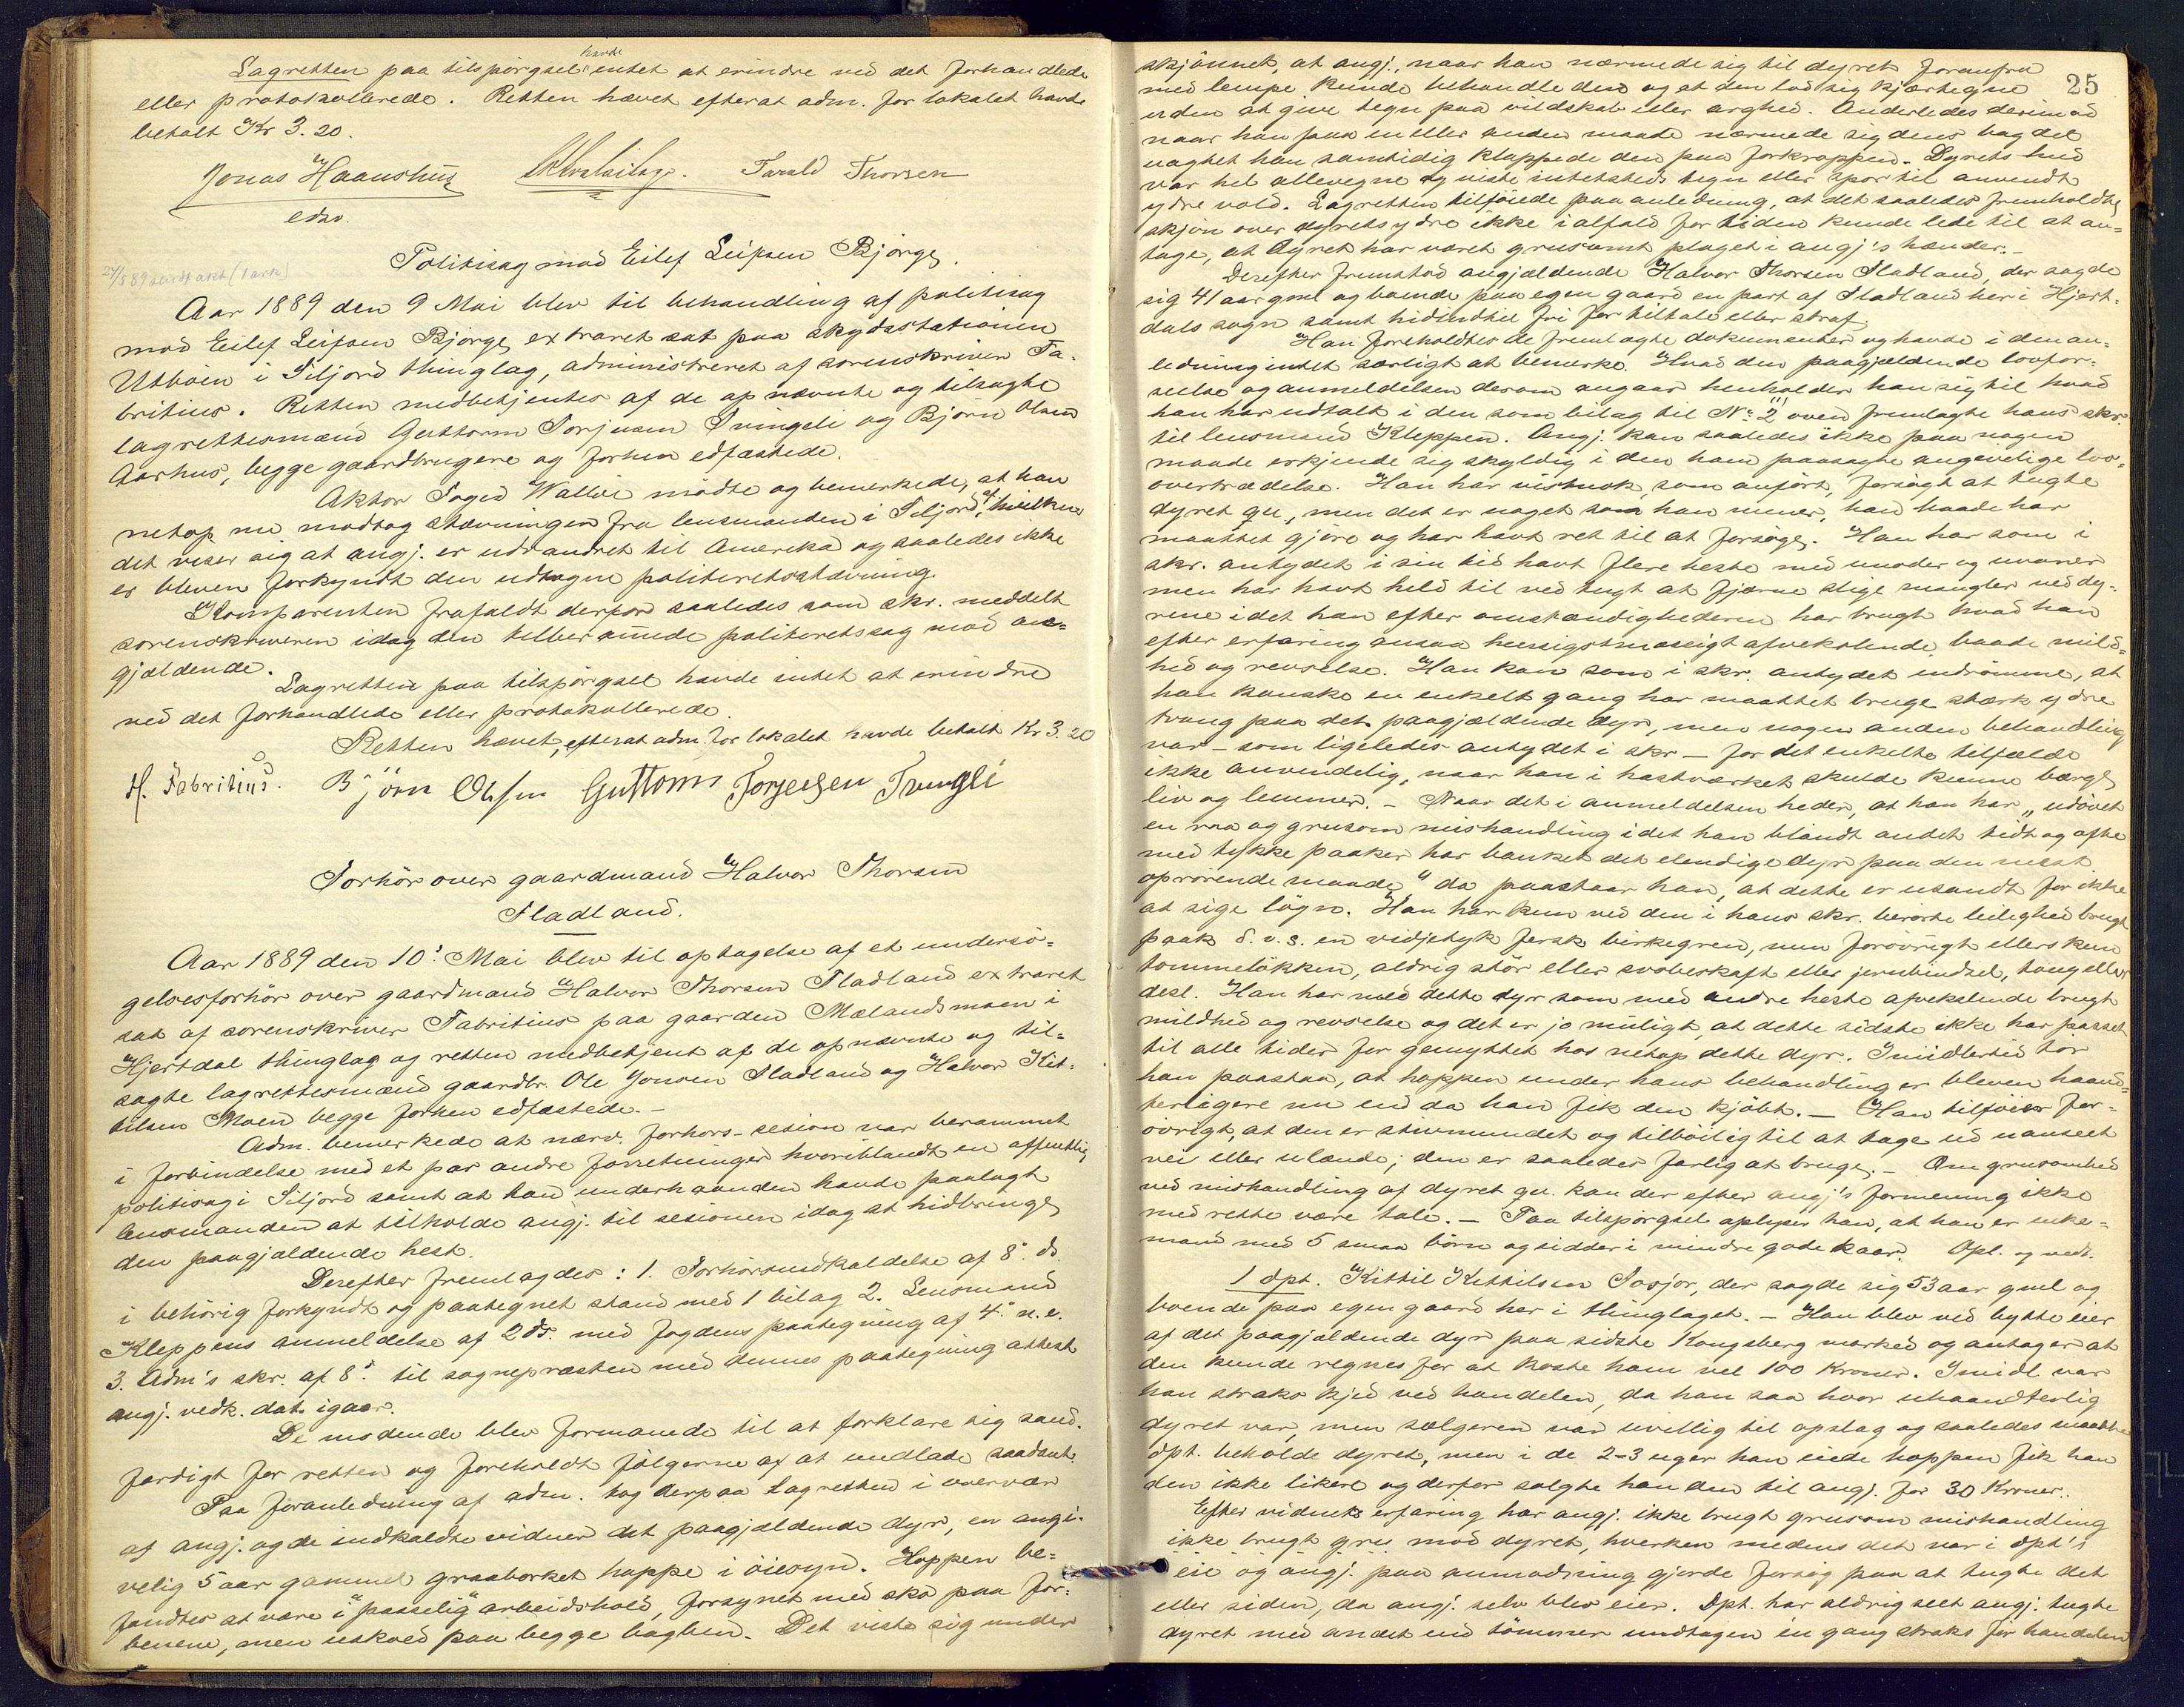 havde
Lagretten paa tilspörgsel intet at erindre ved det forhandlede
eller protokollerede. Retten hævet efterat adm. for lokalet havde
betalt Kr 3.20.
Jonas Haanshus Tarald Thorsen
edsv.
Politisag mod Eilef Leifsen Bjørge.
Aar 1889 den 9 Mai blev til behandling af politisag
mod Eilef Leifsen Bjørge extraret sat paa skydsstationen
Utböen i Siljord thinglag, administreret af sorenskriver Fa-
britius. Retten medbetjentes af de opnævnte og tilsagte
lagrettesmænd Guttorm Torjusen Tvingli og Björn Olsen
Aarhus, begge gaardbrugere og forhen edfæstede.
Aktor Foged Walløe mödte og bemerkede, at han
netop nu modtog stævningen fra lensmanden i Siljord, af hvilken
det viser sig at angj. er udvandret til Amerika og saaledes ikke
er bleven forkyndt den udtagne politiretsstævning.
Komparenten frafaldt derfor saaledes som skr. meddelt
sorenskriveren idag den tilberammede politiretssag mod an-
gjældende.
Lagretten paa tilspörgsel havde intet at erindre
ved det forhandlede eller protokollerede.
Retten hævet, efterat adm. for lokalet havde betalt Kr 3.20
H. Fabritius. Björn Olsen Guttorm Torjeisen Tvingli
Forhör over gaardmand Halvor Thorsen
Fladland.
Aar 1889 den 10: Mai blev til optagelse af et undersö-
gelsesforhör over gaardmand Halvor Thorsen Fladland extraret
sat af sorenskriver Fabritius paa gaarden Mælandsmoen i
Hjertdal thinglag og retten medbetjent af de opnævnte og til-
sagte lagrettesmænd gaardbr. Ole Jonsen Fladland og Halvor Kit-
tilsen Moen begge forhen edfæstede.-
Adm. bemerkede at nærv. forhørs-sesion var berammet
i forbindelse med et par andre forretninger hvoriblandt en offentlig
politisag i Siljord samt at han underhaanden havde paalagt
lensmanden at tilholde angj. til sesionen idag at hidbringe
den paagjældende hest.
Derefter fremlagdes: 1. Forhörsindkaldelse af 8: ds.
i behörig forkyndt og paategnet stand med 1 bilag 2. Lensmand
Kleppens anmeldelse af 2 ds. med fogdens paategning af 4: n.e.
3. Adm's skr. af 8: til sognepræsten med dennes paategning attest
angj. vedk. dat. igaar.
De mödende blev formanede til at forklare sig sand-
færdigt for retten og foreholdt fölgerne af at undlade saadant.
Paa foranledning af adm. tog derpaa Lagretten i overvær
af angj. og de indkaldte vidner det paagjældende dyr, en angi-
velig 5 aar gammel graaborket hoppe i öiesyn. Hoppen be-
fandtes at være i "passelig" arbeidshold, forsynet med sko paa for-
benene, men uskoed paa begge bagben. Det viste sig under
25
skjönnet, at angj., naar han nærmede sig til dyret foranfra
med lempe kunde behandle den og at den lod sig kjærtegne
uden at give tegn paa vildskab eller arghed. Anderledes derimod
naar han paa en eller anden maade nærmede sig dens bagdel
uagtet han samtidig klappede den paa forkroppen. Dyrets hud
var hel allevegne og viste intetsteds tegn eller spor til anvendt
ydre vold. Lagretten tilföiede paa anledning, at det saaledes fremholdte
skjön over dyrets ydre ikke i alfald for tiden kunde lede til at an-
tage, at dyret har været grusomt plaget i angj's hænder.-
Derefter fremstod angjældende Halvor Thorsen Fladland, der sagde
sig 41 aar gml og boende paa egen gaard en part af Fladland her i Hjert-
dals sogn samt hidindtil fri for tiltale eller straf.
Han foreholdtes de fremlagte dokumenter og havde i den an-
ledning intet særligt at bemerke. Hvad den paagjældende lovfor-
seelse og anmeldelsen derom angaar henholder han sig til hvad
han har udtalt i den som bilag til No 2 oven fremlagte hans skr.
til lensmand Kleppen. Angj. kan saaledes ikke paa nogen
maade erkjende sig skyldig i den ham paasagte angivelige lov-
overtrædelse. Han har vistnok, som anfört, forsögt at tugte
dyret qu., men det er noget som han mener, han baade har
maattet gjöre og har havt ret til at forsöge. Han har som i
skr. antydet i sin tid havt flere heste med unoder og uvaner
men har havt held til ved tugt at fjærne slige mangler ved dy-
rene idet han efter omstændighederne har brugt hvad han
efter erfaring ansaa hensigtsmæssigt afvekslende, baade mild-
hed og revselse. Han kan som i skr. antydet indrömme, at
han kanske en enkelt gang har maattet bruge stærk ydre
tvang paa det paagjældende dyr, men nogen anden behandling
var - som ligeledes antydet i skr - for det enkelte tilfælde
ikke anvendelig, naar han i hastværket skulde kunne bærge
liv og lemmer. - Naar det i anmeldelsen heder, at han har "udövet
en raa og grusom mishandling idet han blandt andet tidt og ofte
med tykke paaker har banket det elendige dyr paa den mest
oprörende maade" da paastaar han, at dette er usandt for ikke
at sige lögn. Han har kun ved den i hans skr. berörte leilighed brugt
paak d.v.s. en vidjetyk fersk birkegren, men forövrigt ellers kun
tömmelökken, aldrig stör eller svöbeskaft eller jernbindsel, toug eller
desl. Han har med dette dyr som med andre heste afvekslende brugt
mildhed og revselse og det er jo muligt, at dette sidste ikke har passet
til alle tider for gemyttet hos netop dette dyr. Imidlertid tör
han paastaa, at hoppen under hans behandling er bleven haand-
terligere nu end da han fik den kjöbt. - Han tilföier for-
övrigt, at den er stivmundet og tilböielig til at tage ud uanseet
vei eller ulænde; den er saaledes farlig at bruge. - Om grusomhed
ved mishandling af dyret qu. kan der efter angj's formening ikke
med rette være tale. - Paa tilspörgsel oplyser han, at han er enke-
mand med 5 smaa börn og sidder i mindre gode kaar. Opl. og vedt.
1 dpt. Kittil Kittilsen Sosjor, der sagde sig 53 aar gml og
boende paa egen gaard her i thinglaget. - Han blev ved bytte eier
af det paagjældende dyr paa sidste Kongsberg marked og antager at
den kunde regnes for at koste ham vel 100 Kroner. Imidl var
han straks kjed ved handelen, da han saa hvor uhaandterlig
dyret var, men sælgeren var uvillig til opslag og saaledes maatte
dpt. beholde dyret, men i de 2-3 uger han eiede hoppen fik han
den ikke likere og derfor solgte han den til angj. for 30 Kroner.
Efter vidnets erfaring har angj. ikke brugt grusom mishandling
ikke brugt gru mod dyret, hverken medens det var i dpt's
eie og angj. paa anmodning gjorde forsög paa at tugte det
eller siden, da angj. selv blev eier. Dpt. har aldrig seet angj. tugte
dyret med andet end tömmer undtagen en gang straks för handelen